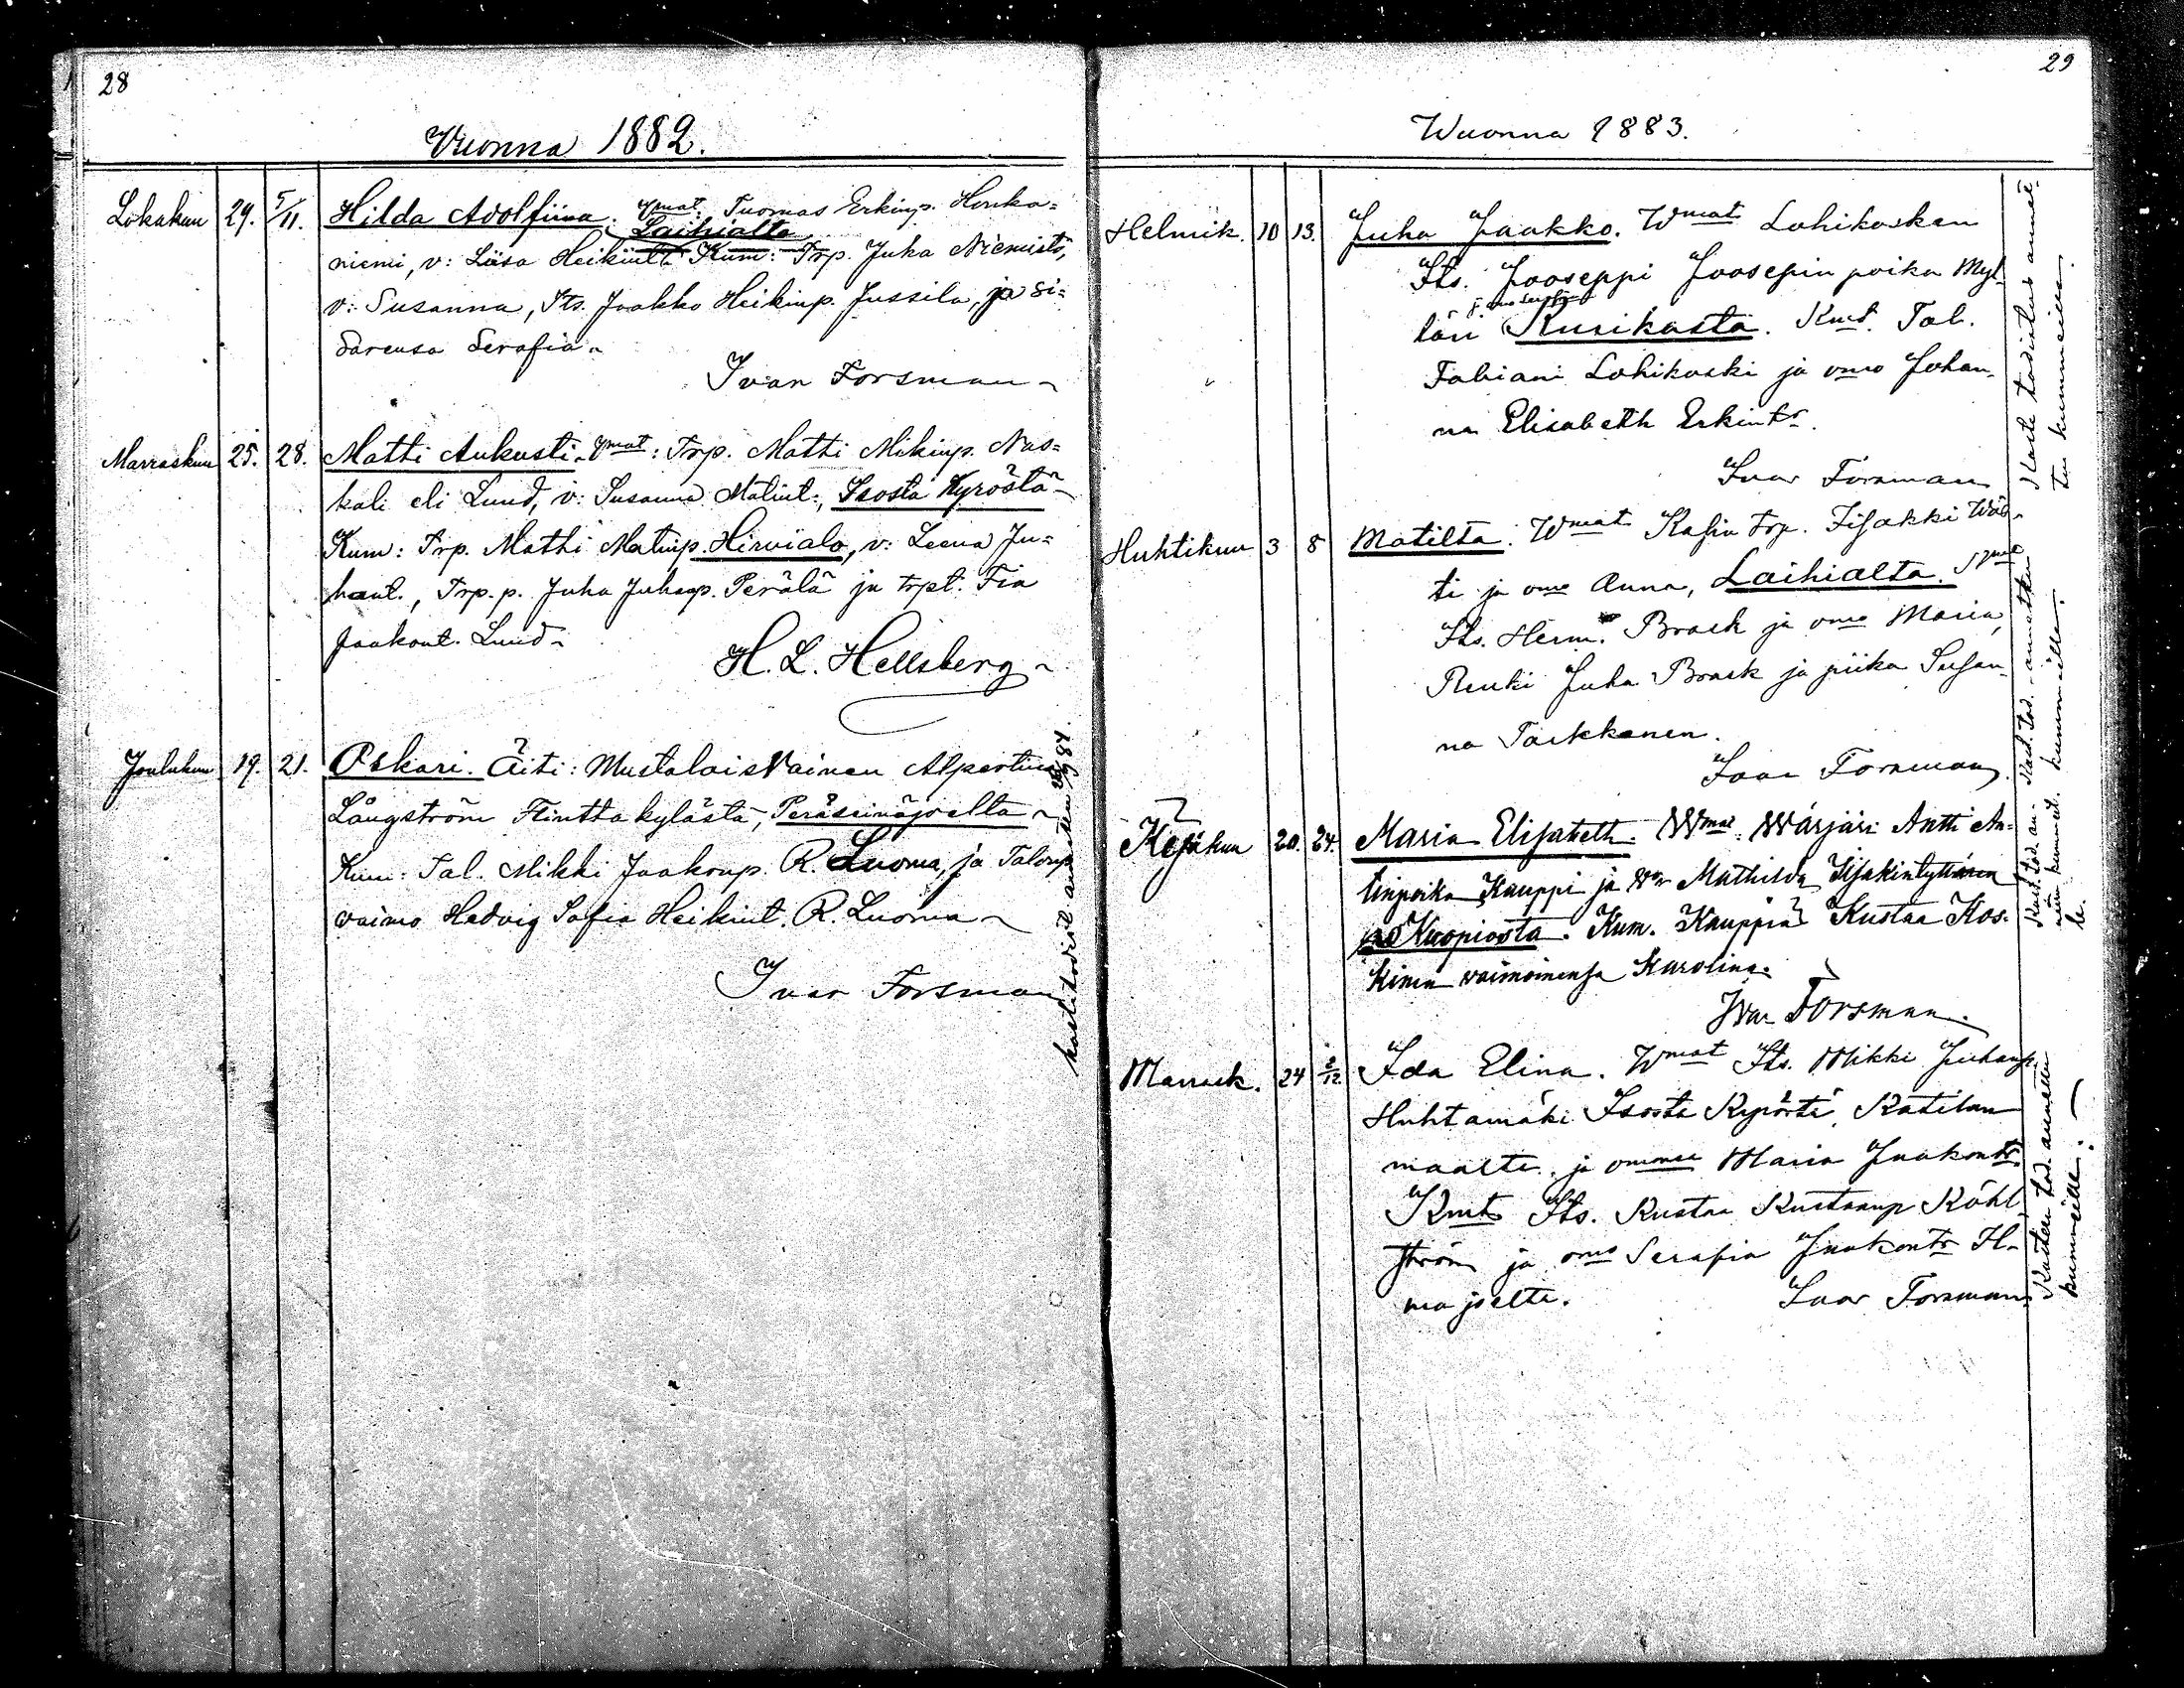 28
Vuonna 1882.
Lokakun 29. 5/11. Hilda Adolfiina. Vmat: Tuomas Erkinp. Honka=
Laihialta
niemi, v: Liisa Heikint. Kum: Trp. Juha Niemistö,
v: Susanna, Its. Jaakko Heikinp. Jussila, ja si=
sarensa Serafia.
Ivar Forsman
Marraskun 25. 28. Matti Aukusti. Vmat: Trp. Matti Mikinp. Nas=
kali eli Lund, v: Susanna Matint:, Isosta Kyröstä
Kum: Trp. Matti Matinp. Hirviala, v: Leena Ju=
hant., Trp. p. Juha Juhanp. Perälä ja trpt. Fia
Jaakont. Lund
H. L. Hellsberg
Joulukun 19. 21. Oskari. Äiti: Mustalaisvainen Alpertina
Långström Flintta kylästä, Peräseinäjoelta
Kum: Tal. Mikki Jaakonp. R. Luoma, ja Talonp.
vaimo Hedvig Sofia Heikint. R. Luoma
Ivar Forsman
29
Wuonna 1883.
Helmik. 10 13. Juha Jaakko. Wmat Lohikosken
Its. Jooseppi Joosepin poika Myl
läri Kurikasta. Kmt. Tal.
Fabiani Lohikoski ja vmo Johan-
na Elisabeth Erkintr.
Ivar Forsman
Huhtikuu 3 8 Matilta. Wmat Trp. Iisakki Wäs-
ti ja vmo Anna, Laihialta.
Its. Herm. Brask ja vmo Maria,
Renki Juha Brask ja piika Susan-
na Tarkkanen.
Ivar Forsman
Kesäkuu 20. 24. Maria Elisabeth. Wmat. Wärjäri Antti An-
tinpoika Kauppi ja Mathilda Iisakintyttären
Kuopiosta. Kum. Kauppias Kustaa Kos-
kinen vaimoinensa Karolina.
Ivar Forsman.
Marrask. 24 2/12. Ida Elina. Wmat Its. Mikki Juhanp.
Huhtamäki Isosta Kyröstä, Katilan
maalta, ja Maria Jaakontr.
Kmt Its. Kustaa Kustaanp Kåhl
ström ja vmo Serafia Jaakontr Il-
majoelta.
Ivar Forsman